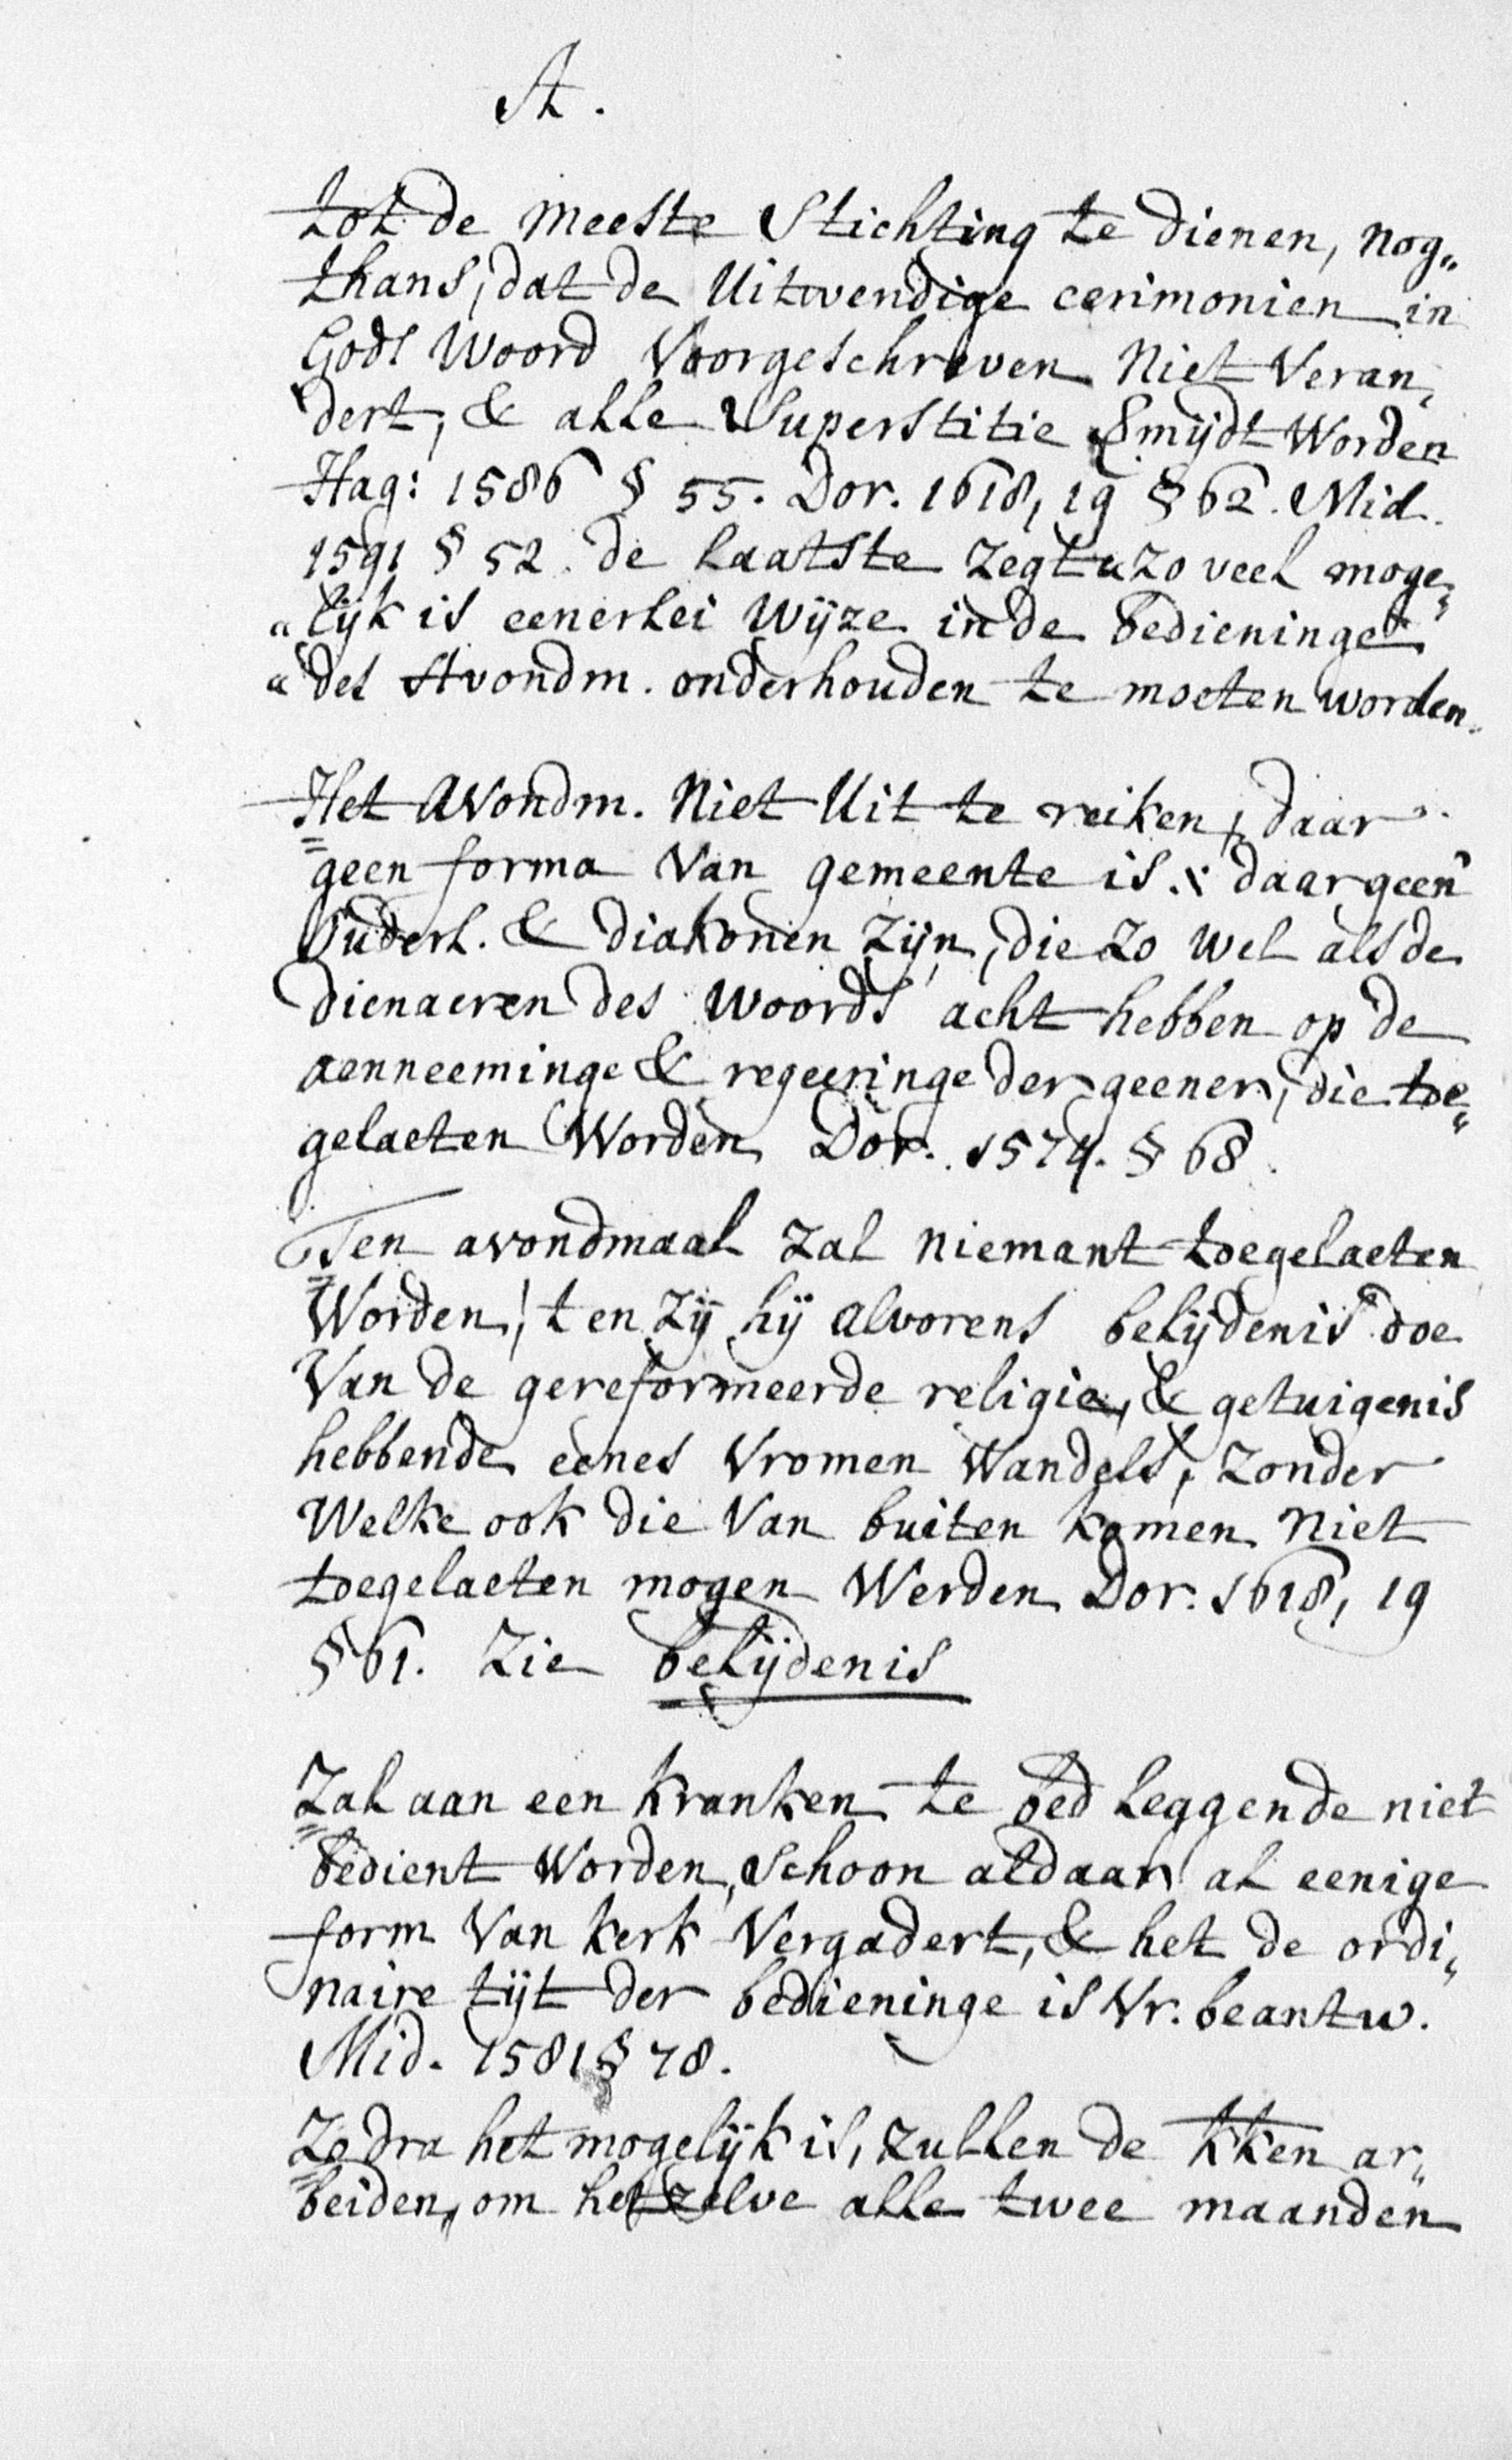 A.
tot de meeste Stichting te dienen, nog„
thans, dat de Uitwendige cerimonien in
Gods Woord Voorgeschreven Niet Veran„
dert, & alle Superstitie mijdt Worden
Hag: 1586 § 55. Dor. 1618, 19 § 62. Mid.
1591 § 52. de laatste zegt „zo veel moge„
„lijk is eenerlei Wijze in de bedieninge
„des Avondm. onderhouden te moeten worden.
Het Avondm. Niet Uit te reiken, daar
geen forma Van gemeente is: daar geen
Ouderl. & diakonen Zijn, die zo wel als de
dienaeren des Woords acht hebben op de
aenneeminge & regeeringe der geener, die toe„
gelaeten Worden Dor. 1574. § 68.
Ten avondmaal zal niemant toegelaeten
Worden, ten zij hij alvorens belijdenis doe
Van de gereformeerde religie, & getuigenis
hebbende eenes Vromen Wandels, zonder
Welke ook die Van buiten komen Niet
toegelaeten mogen Werden Dor. 1618, 19
§ 61. Zie belijdenis
Zal aan een Kranken te bed leggende niet
bedient Worden, schoon aldaar al eenige
form Van kerk Vergadert, & het de ordi„
naire tijt der bedieninge is Vr. beantw.
Mid. 1581 § 78.
Zodra het mogelijk is, zullen de kken ar„
beiden, om hetzelve alle twee maanden